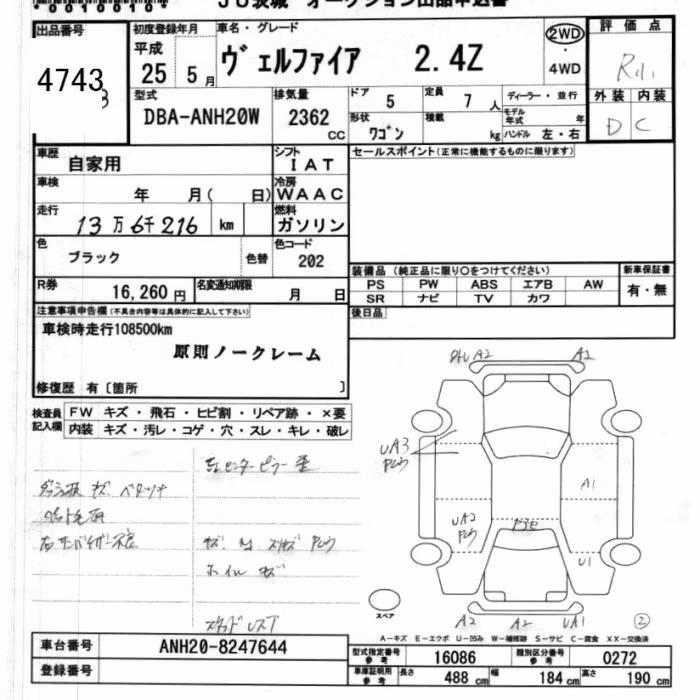 JU茨城 オークション出品申込書
*00100100*
出品番号
4743
初度登録年月
平成
25 5月
車名・グレード
ヴェルファイア 2.4Z
2WD
・
4WD
評価点
外装 内装
D C
型式
DBA-ANH20W
排気量
2362 CC
ドア 5
定員 7 人
形状 ワゴン
積載 kg
ディーラー・並行
モデル年式 年
ハンドル 左・右
車歴 自家用
シフト IAT
セールスポイント(正常に機能するものに限ります)
車検 年 月( 日)
冷房 WAAC
走行 13万6千216 km
燃料 ガソリン
色 ブラック 色替
色コード 202
R券 16,260 円
名変通知期限 月 日
装備品 (純正品に限り○をつけてください)
PS PW ABS エアB AW
SR ナビ TV カワ
新車保証書
有・無
後日品
注意事項申告欄(不具合内容等は具体的に記入して下さい)
車検時走行108500km
原則ノークレーム
修復歴 有〔箇所 〕
検査員記入欄
FW キズ・飛石・ヒビ割・リペア跡・×要
内装 キズ・汚レ・コゲ・穴・スレ・キレ・破レ
A2 A2
UA3
A1
UA2
U1
A2 A2 UA1
スペア
②
A−キズ E−エクボ U−凹み W−補修跡 S−サビ C−腐食 XX−交換済
車台番号 ANH20-8247644
登録番号
型式指定番号 参考 16086
類別区分番号 参考 0272
車庫証明用 参考 長さ 488 cm 幅 184 cm 高さ 190 cm